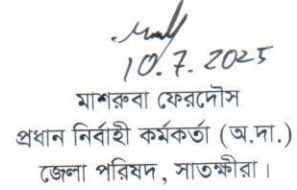 10.7.2025
মাশরুবা ফেরদৌস
প্রধান নির্বাহী কর্মকর্তা (অ.দা.)
জেলা পরিষদ, সাতক্ষীরা।